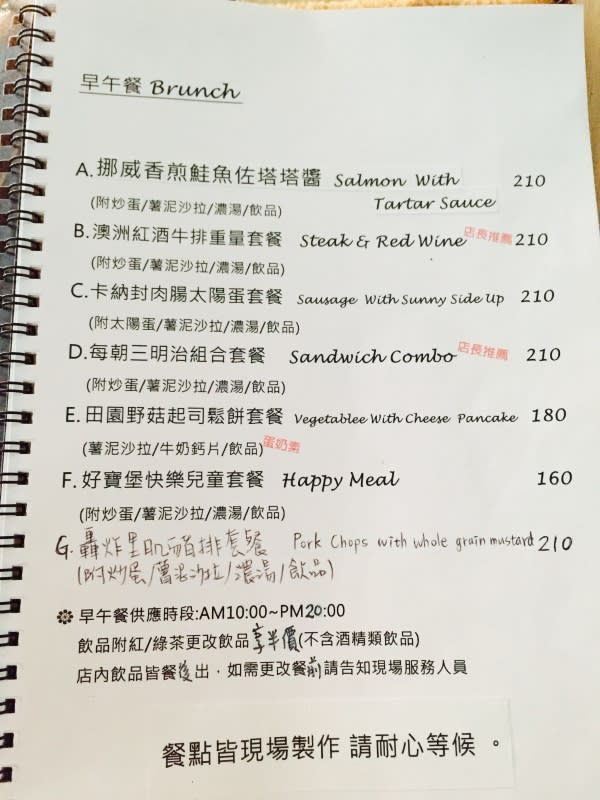 早午餐 Brunch
A.挪威香煎鮭魚佐塔塔醬 Salmon With 210
Tartar Sauce
(附炒蛋/薯泥沙拉/濃湯/飲品)
B.澳洲紅酒牛排重量套餐 Steak & Red Wine 店長推薦 210
(附炒蛋/薯泥沙拉/濃湯/飲品)
C.卡納封肉腸太陽蛋套餐 Sausage With Sunny Side Up 210
(附太陽蛋/薯泥沙拉/濃湯/飲品)
D.每朝三明治組合套餐 Sandwich Combo 店長推薦 210
(附炒蛋/薯泥沙拉/濃湯/飲品)
E.田園野菇起司鬆餅套餐 Vegetablee With Cheese Pancake 180
(薯泥沙拉/牛奶鈣片/飲品) 蛋奶素
F.好寶堡快樂兒童套餐 Happy Meal 160
(附炒蛋/薯泥沙拉/濃湯/飲品)
G.轟炸里肌豬排套餐 Pork Chops with whole grain mustard 210
(附炒蛋/薯泥沙拉/濃湯/飲品)
早午餐供應時段:AM10:00~PM20:00
飲品附紅/綠茶更改飲品享半價(不含酒精類飲品)
店內飲品皆餐後出，如需更改餐前請告知現場服務人員
餐點皆現場製作 請耐心等候 。